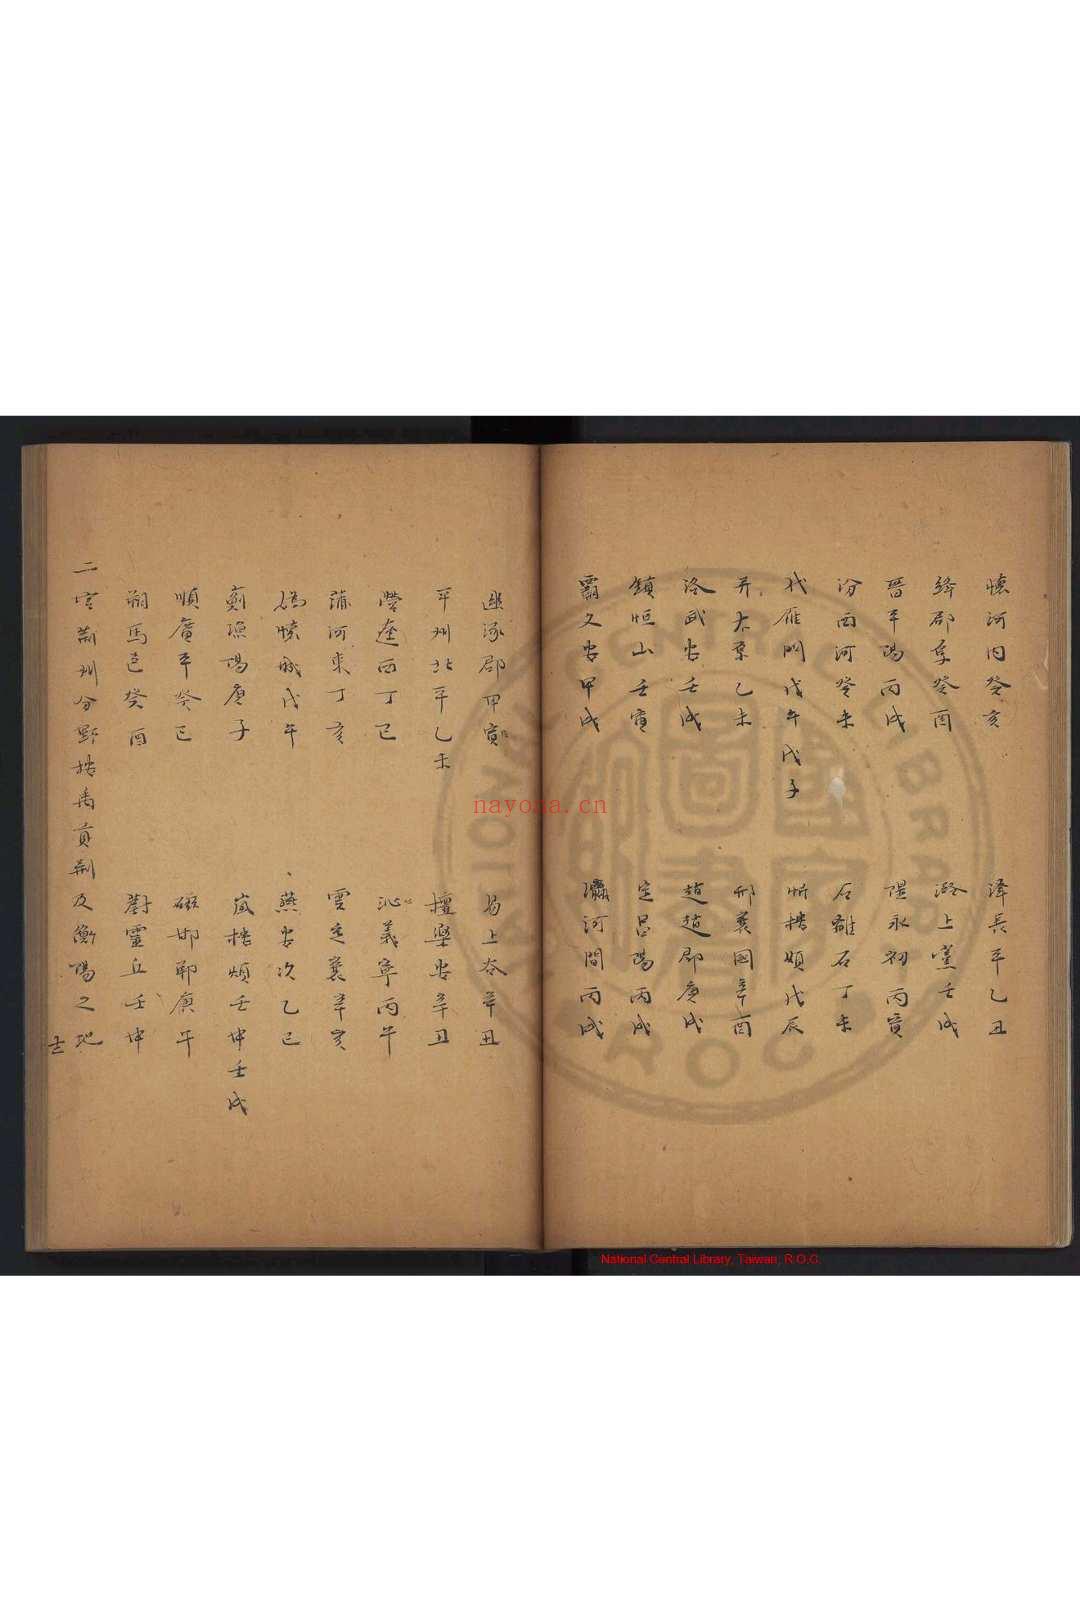 懷河內癸亥
澤長平乙丑
絳郡癸酉
潞上黨壬戌
晋平陽丙戌
隰永初丙寅
汾西河癸未
石離石丁未
代雁門戊午戊子
忻樓煩戊辰
并太原乙未
邢襄國辛酉
洛武安壬戌
趙趙郡庚戌
鎮恒山壬寅
定昌陽丙戌
霸文安甲戌
瀛河間丙戌
幽涿郡甲寅
易上谷辛丑
平州北平乙未
檀樂安辛丑
營遼西丁巳
沁義寧丙午
蒲河東丁亥
雲定襄辛亥
媯懷戎戊午
燕安次乙巳
薊漁陽庚子
嵐樓煩壬申壬戌
順廣平癸巳
磁邯鄲庚午
朔馬邑癸酉
蔚靈丘壬申
二宫荊州分野按禹貢荆及衡陽之地
NATIONAL CENTRAL LIBRARY
國家圖書館
nayona.cn
National Central Library, Taiwan, R.O.C.